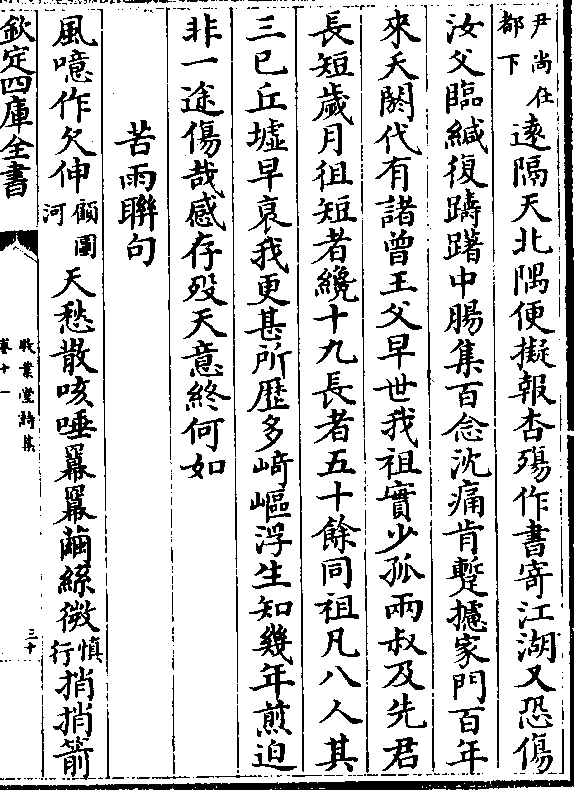 尹尚在都下遠隔天北隅便擬報杏殤作書寄江湖又恐傷
汝父臨緘復躊躇中腸集百念沈痛肯蹔攄家門百年
來夭閼代有諸曽王父早世我祖實少孤兩叔及先君
長短歳月徂短者纔十九長者五十餘同祖凡八人其
三已丘墟早衰我更甚所歴多﨑嶇浮生知幾年煎迫
非一途傷哉感存殁天意終何如
苦雨聯句
風噫作欠伸顧圖河天愁散咳唾羃羃繭絲微慎行捎捎箭
欽定四庫全書
敬業堂詩集
卷十一
三十